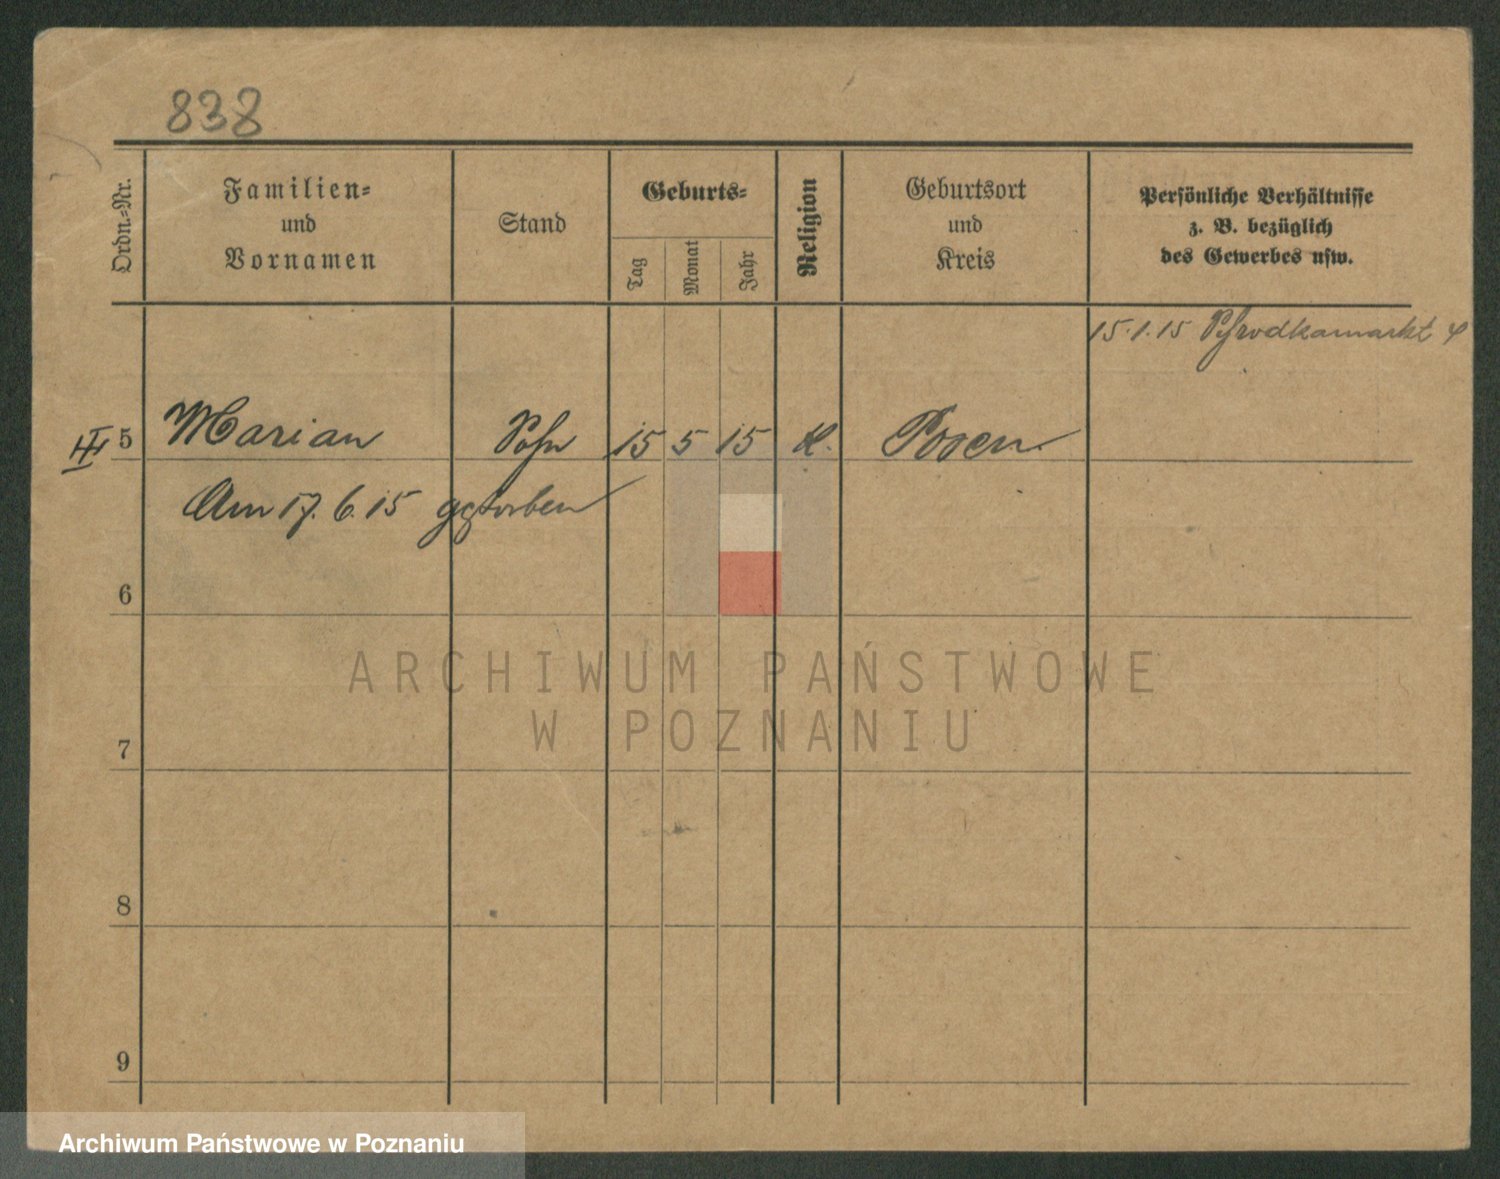 838
Ordn.-Nr.
Familien-
und
Vornamen
Stand
Geburts-
Tag
Monat
Jahr
Religion
Geburtsort
und
Kreis
Persönliche Verhältnisse
z. B. bezüglich
des Gewerbes usw.
15.1.15 Schrodkamarkt
III 5 Marian Sohn 15 5 15 K. Posen
Am 17.6.15 gestorben
6
ARCHIWUM PAŃSTWOWE
W POZNANIU
7
8
9
Archiwum Państwowe w Poznaniu